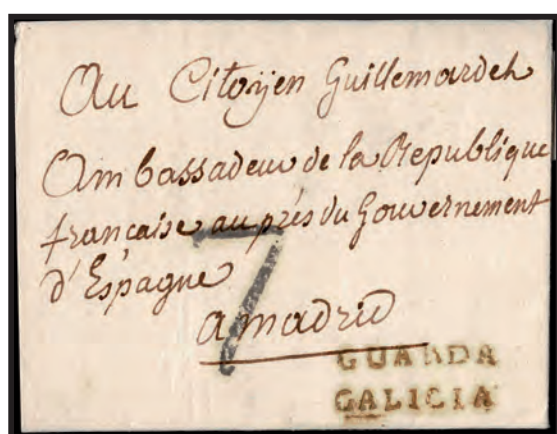 Au Citoyen Guillemardet
Ambassadeur de la Republique
francaise au près du Gouvernement
d'Espagne
a madrid
7
GUARDA
GALICIA